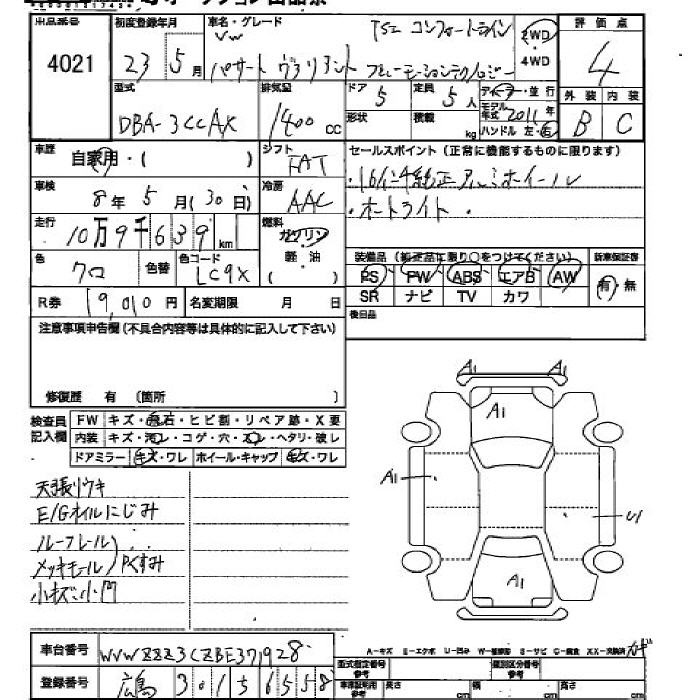 出品番号 4021
初度登録年月 23 5月
車名・グレード VW TSI コンフォートライン
パサート ヴァリアント ブルーモーションテクノロジー
2WD
4WD
評価点 4
外装 内装
B C
型式 DBA-3CCAX
排気量 1400 cc
ドア 5
定員 5人
形状
積載 kg
ディーラー・並行
モデル年式 2011年
ハンドル 左・右
車歴 自家用・( )
シフト FAT
セールスポイント(正常に機能するものに限ります)
・16インチ純正アルミホイール
・オートライト・
車検 8年5月(30日)
冷房 AAC
走行 10万9千639km
燃料 ガソリン
軽・油
( )
色 クロ
色替
色コード LC9X
装備品(純正品に限り○をつけてください)
新車保証書
PS PW ABS エアB AW
SR ナビ TV カワ
有・無
R券 9,010円
名変期限 月 日
後日品
注意事項申告欄(不具合内容等は具体的に記入して下さい)
修復歴 有 〔箇所 〕
検査員記入欄
FW キズ・飛石・ヒビ割・リペア跡・X要
内装 キズ・汚レ・コゲ・穴・スレ・ヘタリ・破レ
ドアミラー キズ・ワレ ホイール・キャップ キズ・ワレ
A1 A1
A1
A1
U1
A1
天張リウキ
E/Gオイルにじみ
ルーフレール
メッキモール
小キズ小凹
車台番号 WVWZZZ3CZBE371928
登録番号 広島 301 5 6558
A-キズ E-エクボ U-凹み
型式指定番号 参考
類別区分番号 参考
長さ cm
幅 cm
高さ cm